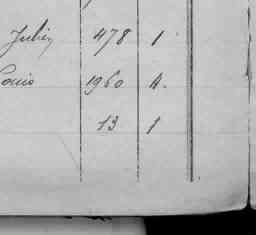 Julien 478 1
Louis 1960 4.
13 1